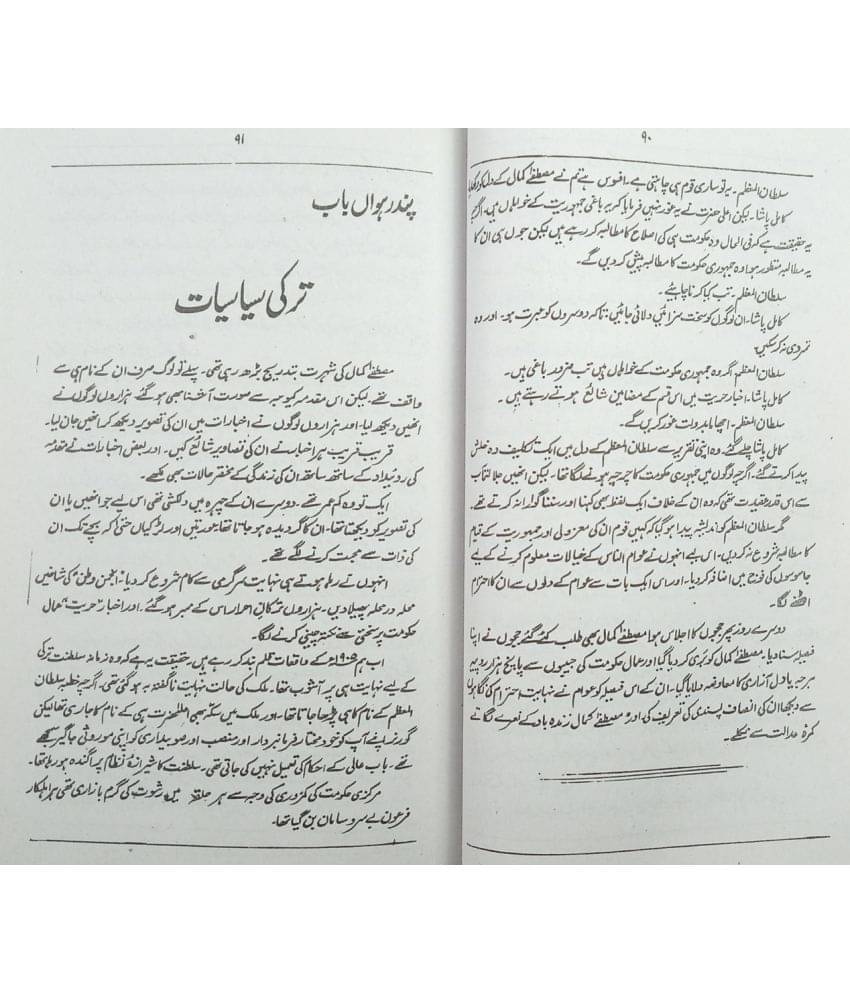 ۹۰
سلطان المعظم۔ یہ تو ساری قوم ہی چاہتی ہے۔ افسوس ہے تم نے مصطفےٰ کمال کے دل کو دکھایا
کامل پاشا۔ لیکن اعلیٰ حضرت نے یہ غور نہیں فرمایا کہ یہ باغی جمہوریت کے خواہاں ہیں۔ اگرچہ
یہ حقیقت ہے کہ فی الحال وہ حکومت ہی کی اصلاح کا مطالبہ کر رہے ہیں لیکن جوں ہی ان کا
یہ مطالبہ منظور ہوا وہ جمہوری حکومت کا مطالبہ پیش کر دیں گے۔
سلطان المعظم۔ تب کیا کرنا چاہیئے۔
کامل پاشا۔ ان لوگوں کو سخت سزائیں دلائی جائیں۔ تاکہ دوسروں کو عبرت ہو۔ اور وہ
تمردی نہ کر سکیں۔
سلطان المعظم۔ اگر وہ جمہوری حکومت کے خواہاں ہیں تب ضرور باغی ہیں۔
کامل پاشا۔ اخبار حریت میں اس قسم کے مضامین شائع ہوتے رہتے ہیں۔
سلطان المعظم۔ اچھا مابدولت غور کریں گے۔
کامل پاشا چلے گئے۔ وہ اپنی تقریر سے سلطان المعظم کے دل میں ایک تکلیف دہ خلش
پیدا کرتے گئے۔ اگرچہ لوگوں میں جمہوری حکومت کا چرچہ ہونے لگا تھا۔ لیکن انھیں جلالتاب
سے اس قدر عقیدت تھی کہ وہ ان کے خلاف ایک لفظ بھی کہنا اور سننا گوارا نہ کرتے تھے۔
مگر سلطان المعظم کو اندیشہ پیدا ہو گیا کہ کہیں قوم ان کی معزولی اور جمہوریت کے قیام
کا مطالبہ شروع نہ کر دیں۔ اس لیے انہوں نے عوام الناس کے خیالات معلوم کرنے کے لیے
جاسوسوں کی فوج میں اضافہ کر دیا۔ اور اس ایک بات سے عوام کے دلوں سے ان کا احترام
اٹھنے لگا۔
دوسرے روز پھر ججوں کا اجلاس ہوا مصطفےٰ کمال بھی طلب کئے گئے ججوں نے اپنا
فیصلہ سنا دیا۔ مصطفےٰ کمال کو بری کر دیا گیا اور عمال حکومت کی جیبوں سے پانچ ہزار روپیہ
ہرجہ یا دل آزاری کا معاوضہ دلایا گیا۔ ان کے اس فیصلہ کو عوام نے نہایت احترام کی نگاہوں
سے دیکھا ان کی انصاف پسندی کی تعریف کی۔ اور مصطفےٰ کمال زندہ باد کے نعرے لگاتے
کمرۂ عدالت سے نکلے۔
۹۱
پندرہواں باب
ترکی سیاسیات
مصطفےٰ کمال کی شہرت بتدریج بڑھ رہی تھی۔ پہلے تو لوگ صرف ان کے نام ہی سے
واقف تھے۔ لیکن اس مقدمہ کیوجہ سے صورت آشنا بھی ہو گئے۔ ہزاروں لوگوں نے
انھیں دیکھ لیا۔ اور ہزاروں لوگوں نے اخبارات میں ان کی تصویر دیکھ کر انھیں جان لیا۔
قریب قریب ہر اخبار نے ان کی تصاویر شائع کیں۔ اور بعض اخبارات نے مقدمہ
کی روئیداد کے ساتھ ساتھ ان کی زندگی کے مختصر حالات بھی لکھے۔
ایک تو وہ کم عمر تھے۔ دوسرے ان کے چہرہ میں دلکشی تھی اس لیے جو انھیں یا ان
کی تصویر کو دیکھتا تھا۔ ان کا گرویدہ ہو جاتا تھا۔ عورتیں اور لڑکیاں حتیٰ کہ بچے تک ان
کی ذات سے محبت کرنے لگے تھے۔
انہوں نے رہا ہوتے ہی نہایت سرگرمی سے کام شروع کر دیا۔ انجمن وطن کی شاخیں
محلہ در محلہ پھیلا دیں۔ ہزاروں ترکان احرار اس کے ممبر ہو گئے۔ اور اخبار "حریت" عمال
حکومت پر سختی سے نکتہ چینی کرنے لگا۔
اب ہم ۱۹۰۵ء کے واقعات قلم بند کر رہے ہیں۔ حقیقت یہ ہے کہ وہ زمانہ سلطنت ترکی
کے لیے نہایت ہی پر آشوب تھا۔ ملک کی حالت نہایت ناگفتہ بہ ہو گئی تھی۔ اگرچہ خطبہ سلطان
المعظم کے نام کا ہی پڑھا جاتا تھا۔ اور ملک میں سکہ بھی اعلیٰحضرت ہی کے نام کا جاری تھا لیکن
گورنر اپنے آپ کو خود مختار فرمانبردار اور منصب اور صوبیداری کو اپنی موروثی جاگیر سمجھے
تھے۔ باب عالی کے احکام کی تعمیل نہیں کی جاتی تھی۔ سلطنت کا شیرازۂ نظام پراگندہ ہو رہا تھا۔
مرکزی حکومت کی کمزوری کی وجہ سے ہر حلقہ میں رشوت کی گرم بازاری تھی ہر اہلکار
فرعون بے سروسامان بن گیا تھا۔